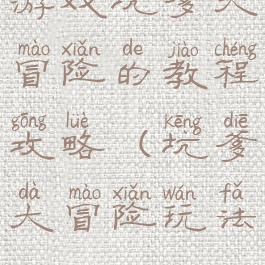 游戏坑爹大
mào xiǎn de jiào chéng
冒险的教程
gōng lüè kēng diē
攻略（坑爹
dà mào xiǎn wán fǎ
大冒险玩法